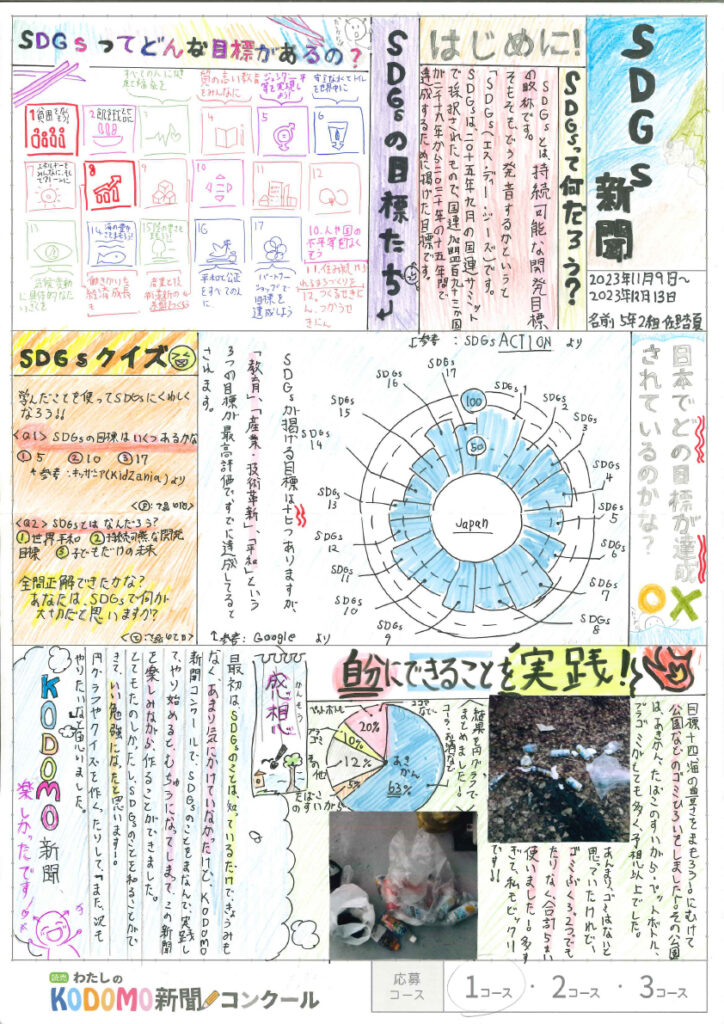 SDGs新聞
2023年11月9日〜
2023年12月13日
名前 5年2組
はじめに!
SDGsって何だろう?
SDGsとは、持続可能な開発目標
の略称です。
そもそもどう発音するかというて
「SDGs(エス・ディー・ジーズ)」です。
SDGsは二〇一五年九月の国連サミット
で採択されたもので、国連加盟百九十三か国
達成するために掲げた目標です。
SDGsの目標たち
SDGsってどんな目標があるの?
すべての人に健康と福祉を
質の高い教育をみんなに
1 貧困をなくそう
2
3
4
5
6
エネルギーをみんなに、そしてクリーンに
7
8
9
10
11
12
13
14 海の豊かさをまもろう
15 陸の豊かさも
16
17
10.人や国の不平等をなくそう
11.住み続けられるまちづくりを
12.つくるせきにん、つかうせきにん
気候変動に具体的なたいさくを
働きがいも経済成長も
平和と公正をすべての人に
パートナーシップで目標を達成しよう
日本でどの目標が達成
されているのかな?
○×
↓参考:SDGs ACTION より
SDGs 1
SDGs 2
SDGs 3
SDGs 4
SDGs 5
SDGs 6
SDGs 7
SDGs 8
SDGs 9
SDGs 10
SDGs 11
SDGs 12
SDGs 13
SDGs 14
SDGs 15
SDGs 16
SDGs 17
100
50
Japan
SDGsが掲げる目標は十七つありますが、
「教育」「産業・技術革新」「平和」という
3つの目標が最高評価ですでに達成してるて
されます。
↑参考:Google より
SDGsクイズ
学んだことを使ってSDGsにくわしく
なろう!!
<Q1> SDGsの目標はいくつあるかな
①5 ②10 ③17
↑参考:キッザニア(KidZania)より
<Q2> SDGsとはなんだろう?
①世界平和 ②持続可能な開発
目標 ③子どもだけの未来
全問正解できたかな?
あなたは、SDGsで何が
大切だと思いますか?
自分にできることを実践!
目標十四「海の豊かさをまもろう」にむけて
公園などのゴミひろいをしました。その公園
は、あきかん、たばこのすいがら、ペットボトル、
プラゴミがとても多く、予想以上でした。
あんまり、ゴミはないと
思っていたけれど、
ゴミぶくろ2つでも
たりなく合計5まい
使いました!多す
ぎて、私もビックリ
です!!
結果を円グラフで
まとめました!
あきかん
63%
20%
10%
12%
5%
ペットボトル
プラゴミ
その他
たばこのすいがら
感想
かんそう
最初は、SDGsのことは、知っているだけで、きょうみも
なく、あまり気にかけていなかったけど、KODOMO
新聞コンクールで、SDGsのことをまなんで、実践し
てやり始めると、むちゅうになってしまって、この新聞
を楽しみながら作ることができました。
とてもたのしかったし、SDGsのことを知ることがで
きて、いい勉強になったと思います!
円グラフやクイズを作くったりして、「また、次も
やりたいな」と思いました。
KODOMO新聞、
楽しかったです!
読売 わたしの
KODOMO新聞コンクール
応募
コース
1コース・2コース・3コース